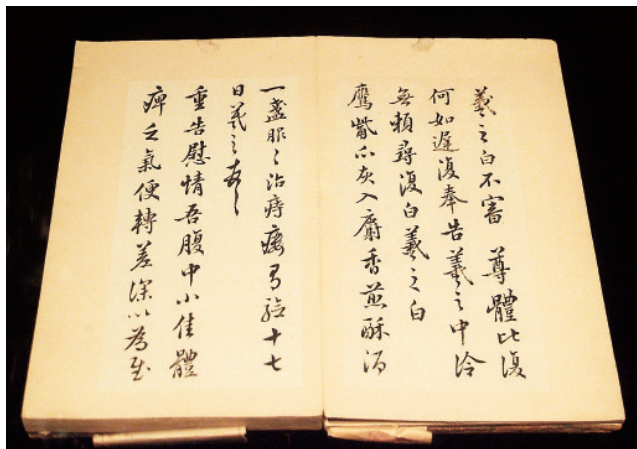 羲之白不審 尊體比復
何如遲復奉告羲之中冷
無賴尋復白羲之白
鷹嘴爪灰入麝香煎酥酒
一盞服之治痔瘻有驗十七
日羲之
重告慰情吾腹中小佳體
痺乏氣便轉差深以為慰